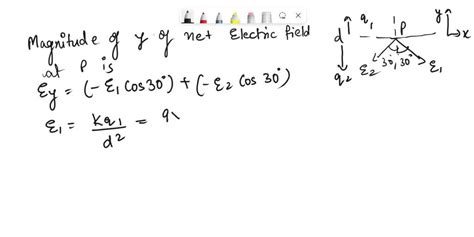 Magnitude of y of net Electric field
at P is
Ey = (-E1 cos 30°) + (-E2 cos 30°)
E1 = kq1/d² = 9
q1 P y
d x
q2 E2 30° 30° E1